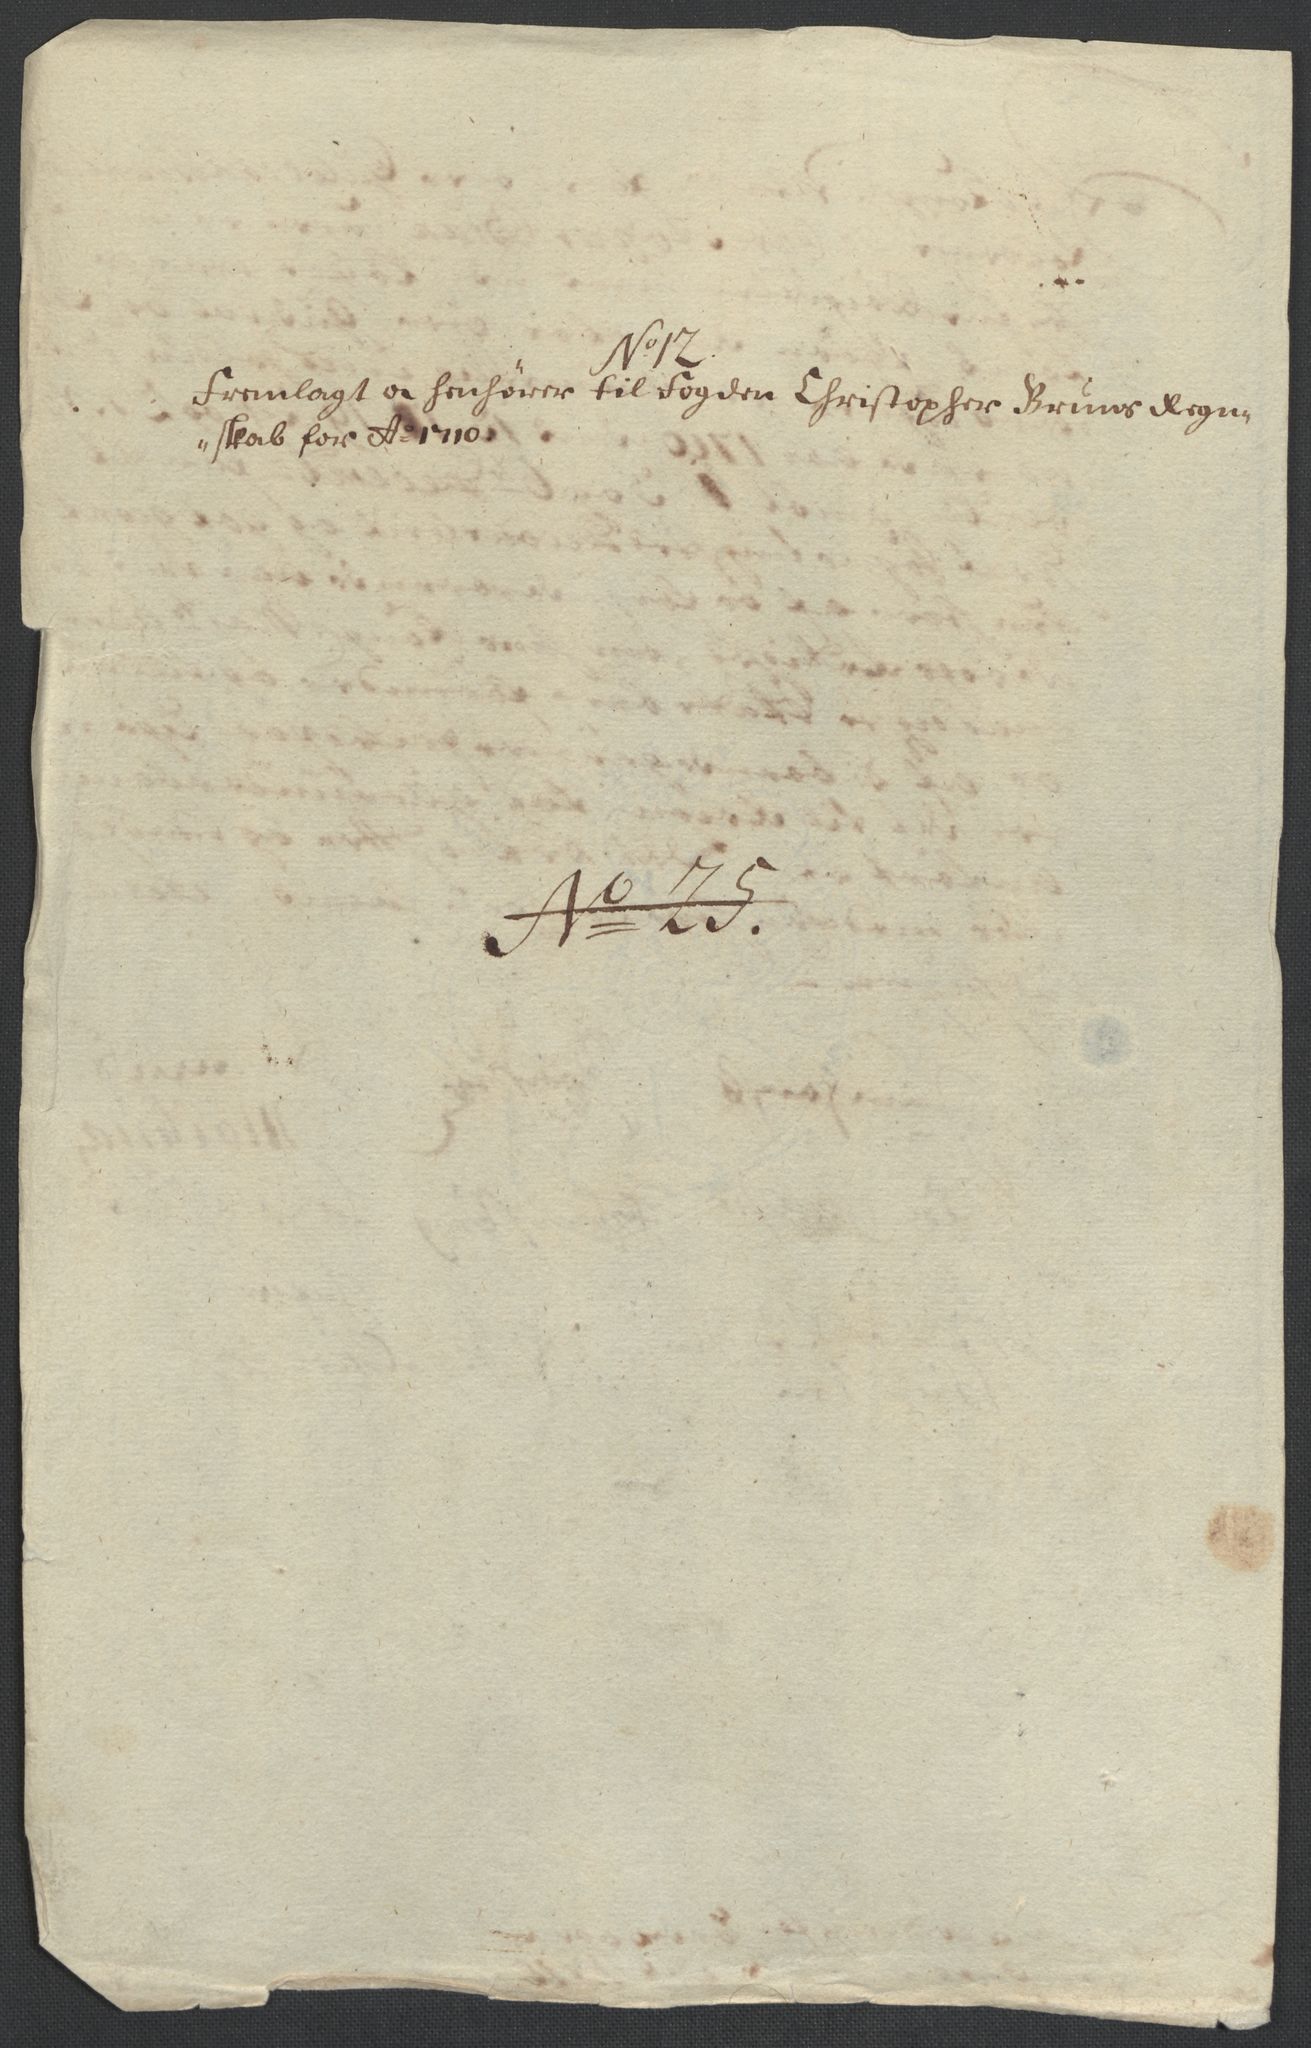 No 12.
Fremlagt oc henhører til Fogden Christopher Bruns Regn„
„skab for Ao 1710.
No 25.